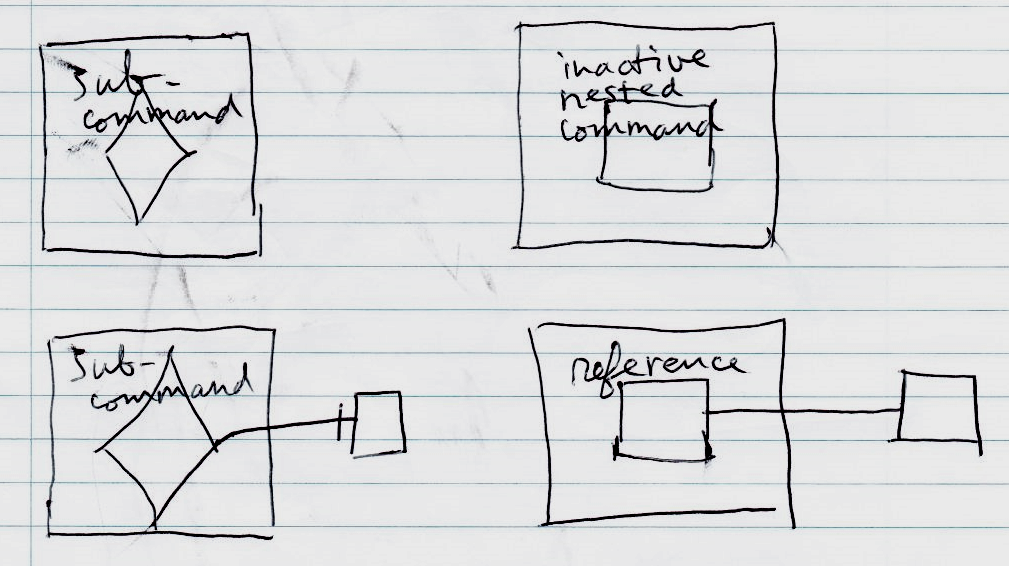 sub-
command
inactive
nested
command
sub-
command
reference